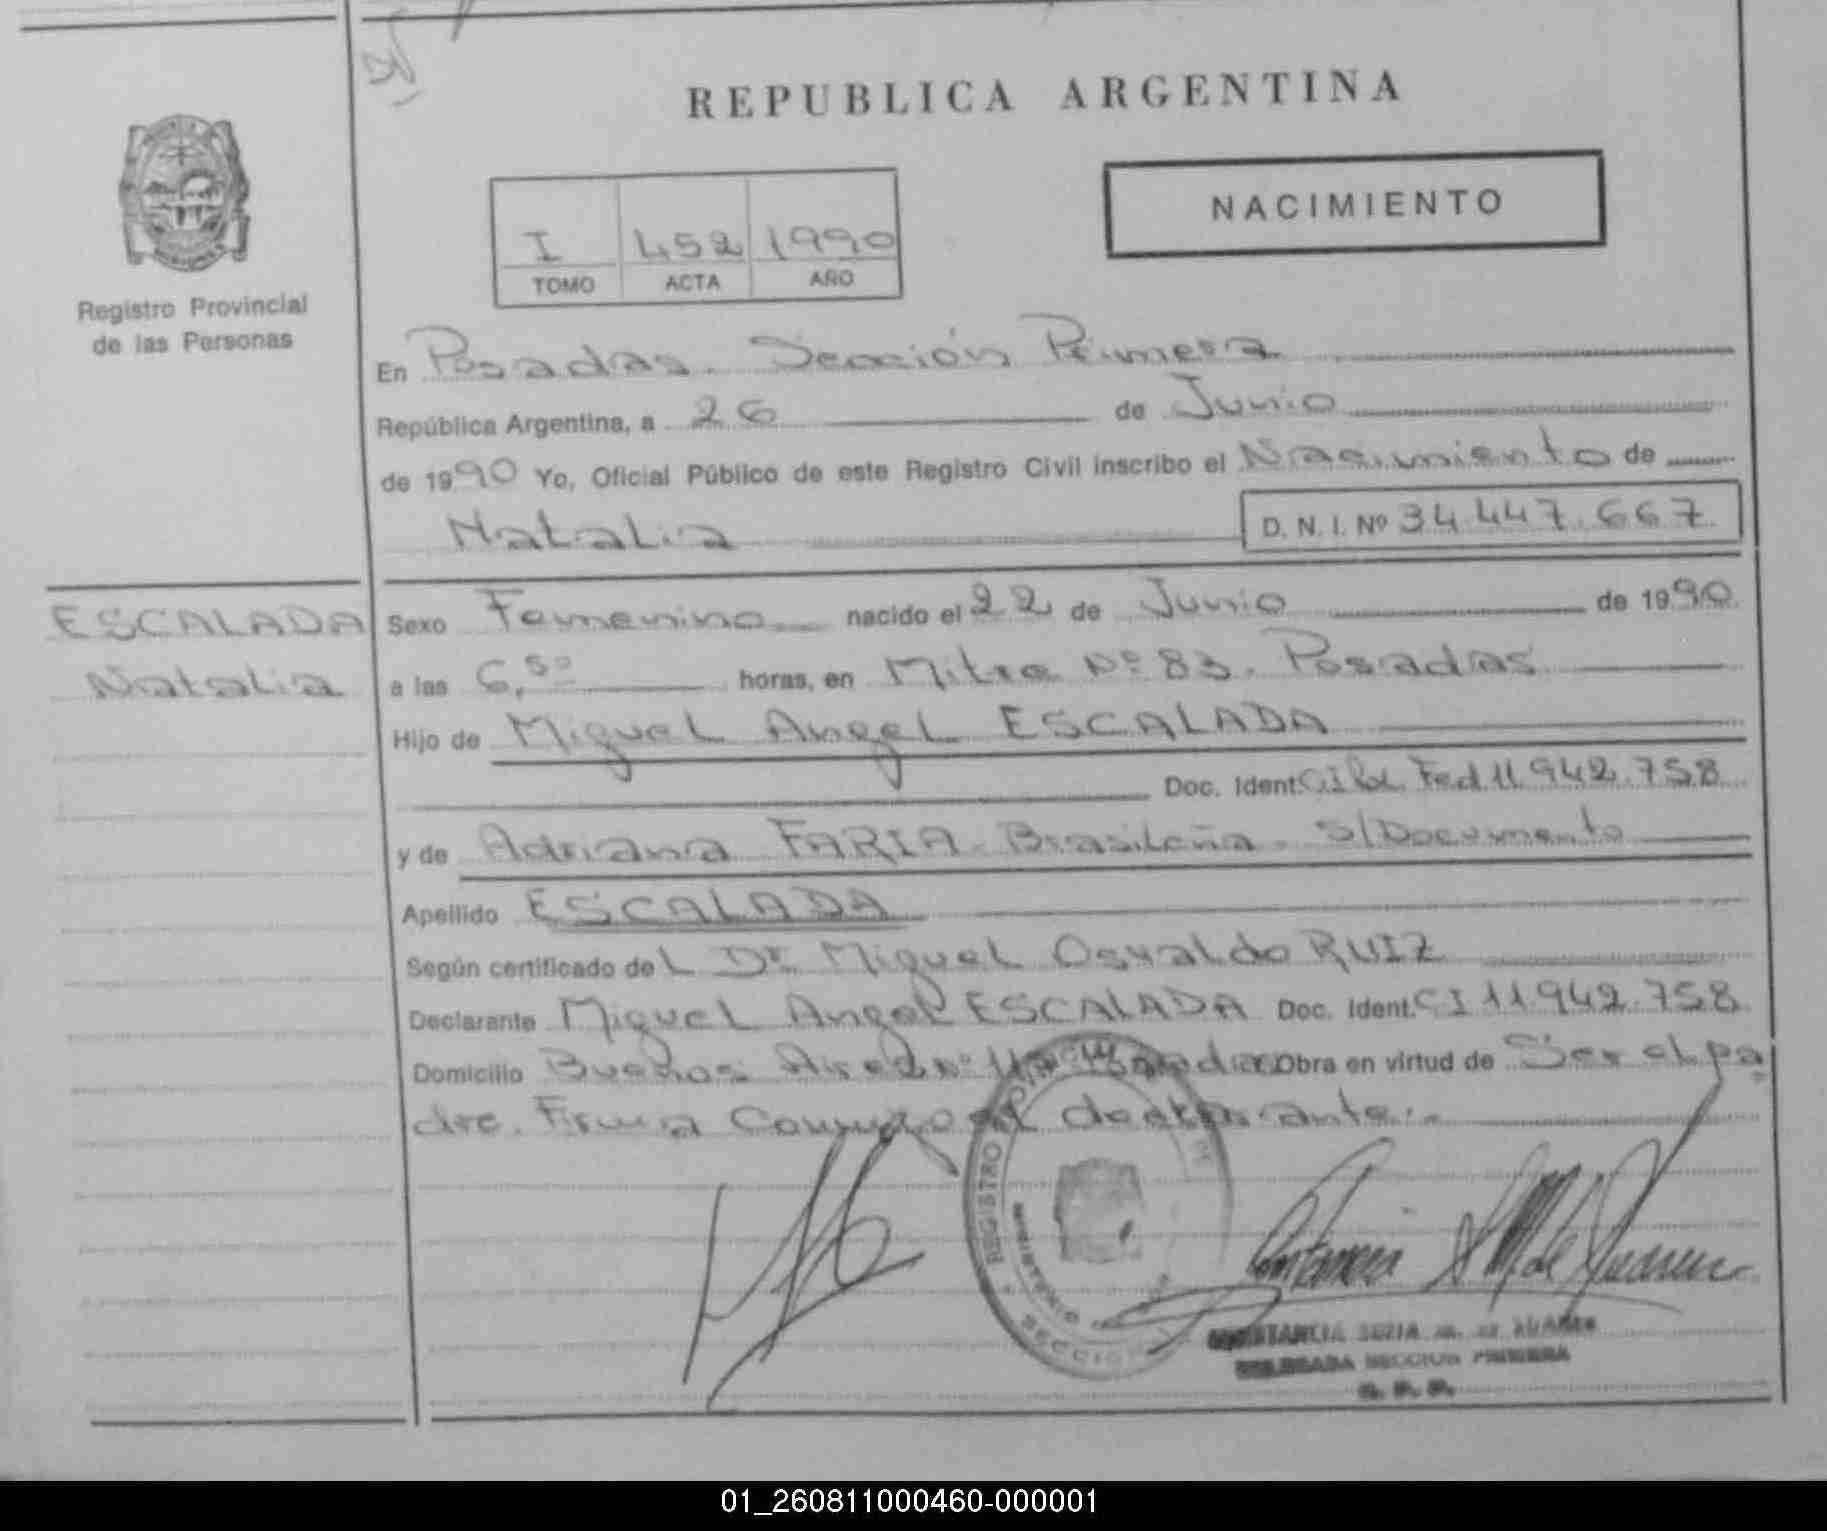 REPUBLICA ARGENTINA
NACIMIENTO
I 452 1990
TOMO ACTA AÑO
Registro Provincial
de las Personas
En Posadas. Sección Primera
República Argentina, a 26 de Junio
de 1990 Yo, Oficial Público de este Registro Civil inscribo el Nacimiento de
Natalia D. N. I. Nº 34.447.667
ESCALADA
Natalia
Sexo Femenino nacido el 22 de Junio de 1990
a las 6,50 horas, en Mitre Nº 83. Posadas
Hijo de Miguel Angel ESCALADA
Doc. Ident. C.I. Fed 11.942.758
y de Adriana FARIA. Brasileña. S/Documento
Apellido ESCALADA
Según certificado del Dr. Miguel Osvaldo RUIZ
Declarante Miguel Angel ESCALADA Doc. Ident. CI 11.942.758
Domicilio Buenos Aires Nº Obra en virtud de Ser el pa
dre. Firma Conmigo el declarante.-
REGISTRO
MINISTERIO
SECCION
CONSTANCIA
DELEGADA SECCION PRIMERA
R. P. P.
01_260811000460-000001